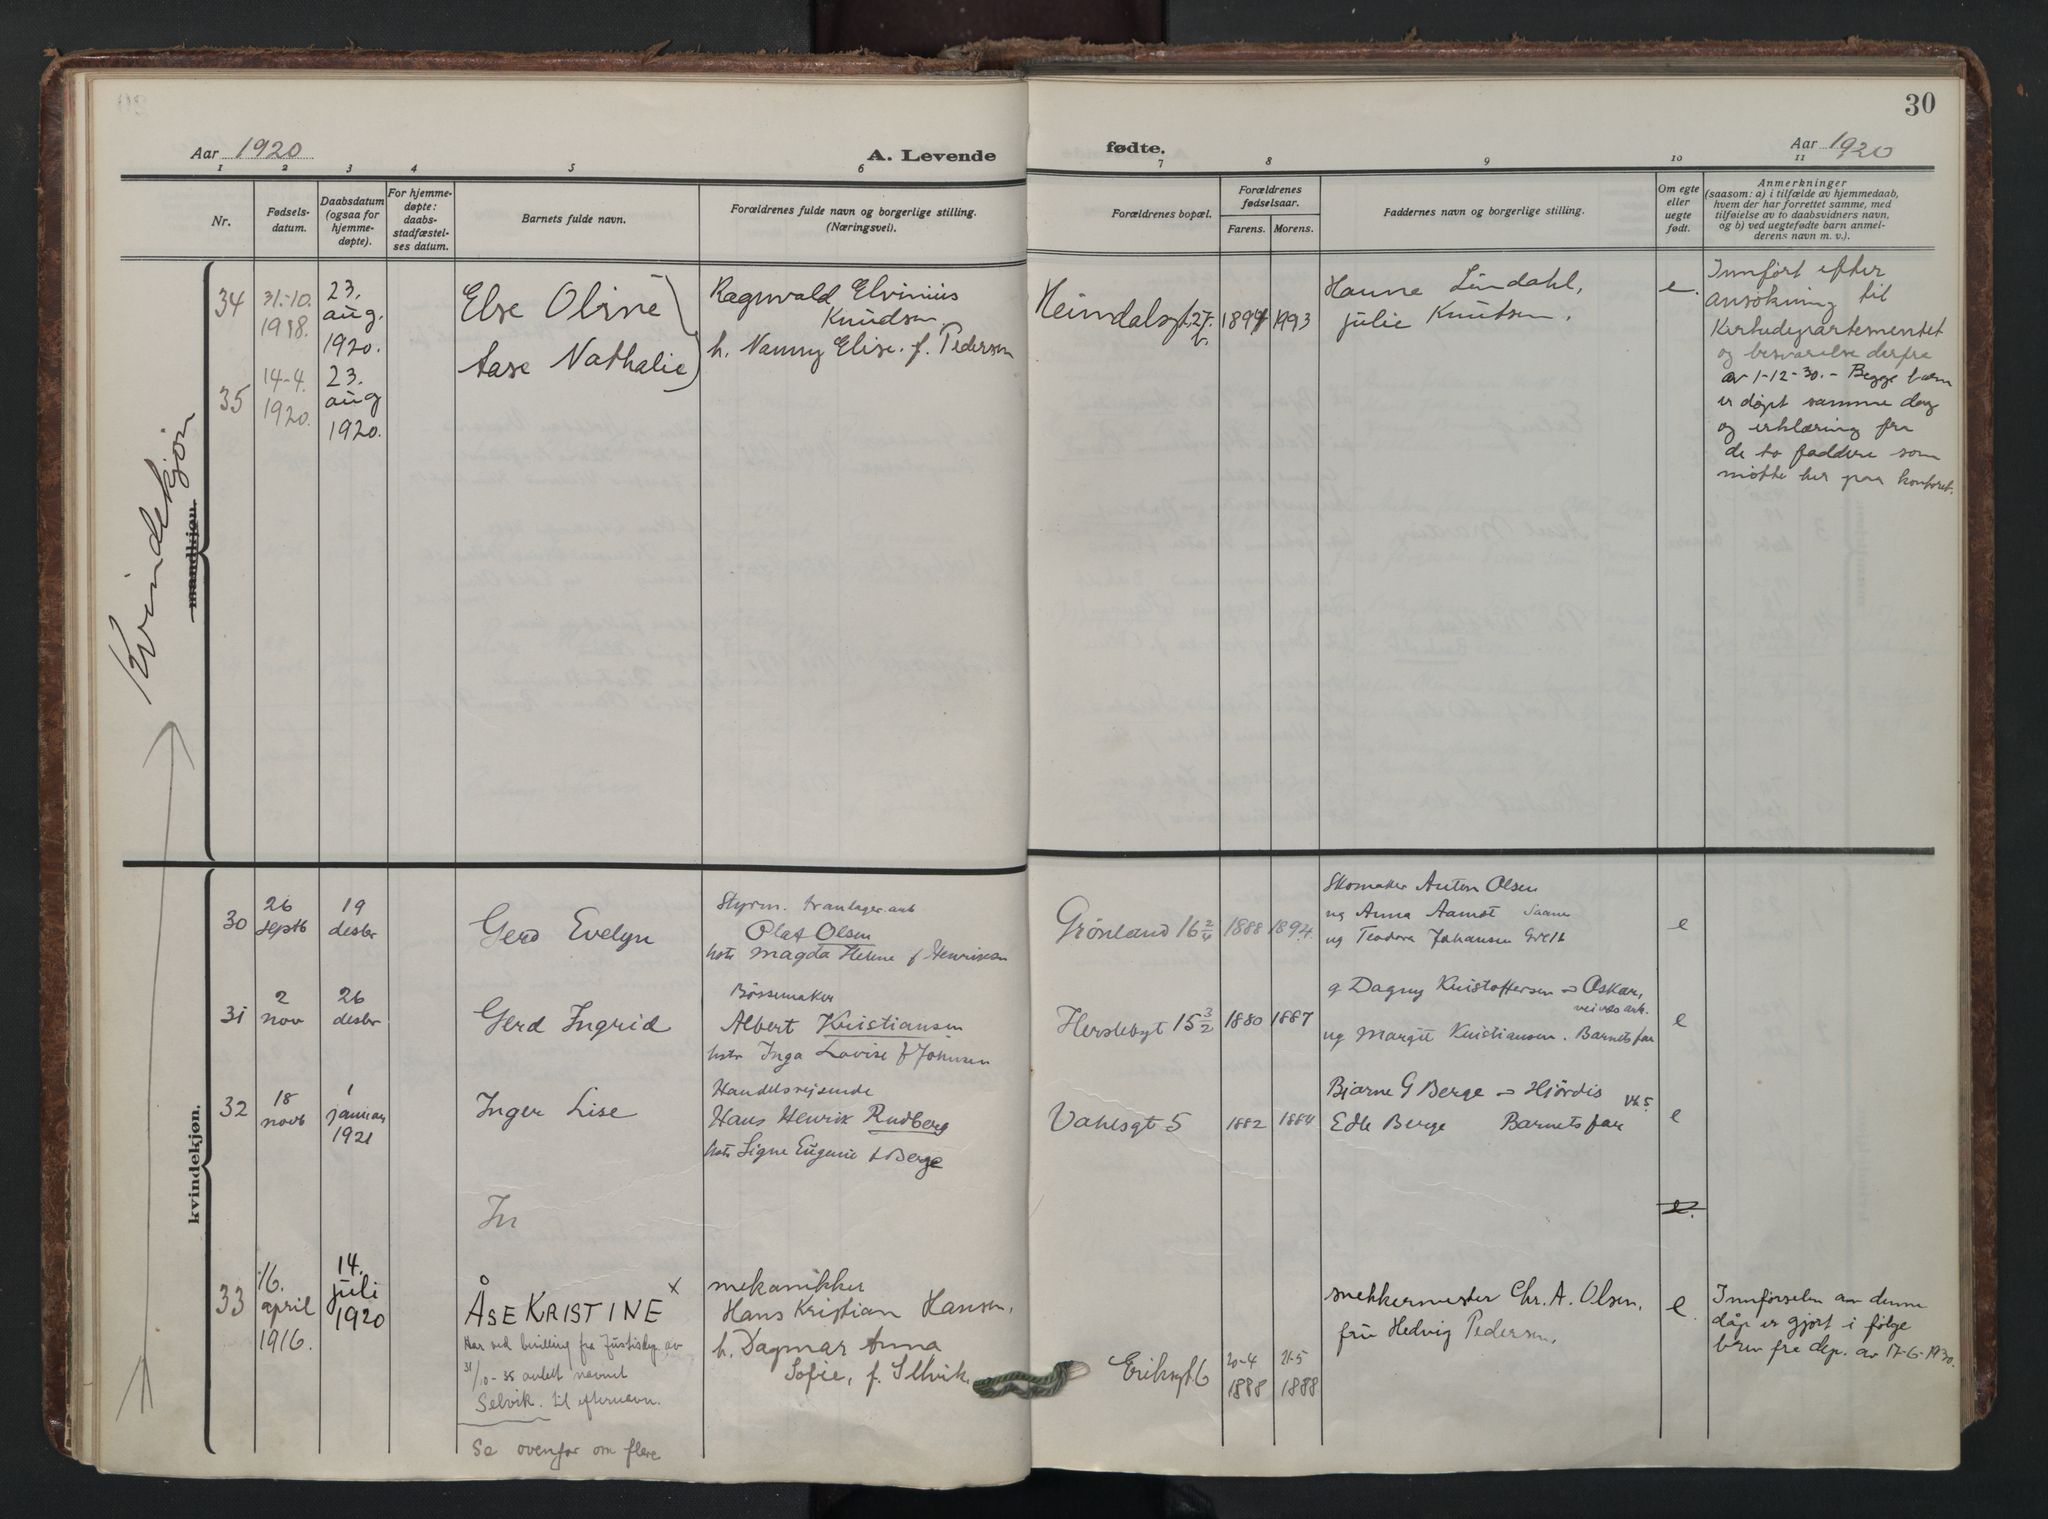 30
Aar 1920
A. Levende fødte.
Aar 1920
1 2 3 4 5 6 7 8 9 10 11
Nr.
Fødsels-
datum.
Daabsdatum
(ogsaa for
hjemme-
døpte).
For hjemme-
døpte:
daabs-
stadfæstel-
ses datum.
Barnets fulde navn.
Forældrenes fulde navn og borgerlige stilling.
(Næringsvei).
Forældrenes bopæl.
Forældrenes
fødselsaar.
Farens. Morens.
Faddernes navn og borgerlige stilling.
Om egte
eller
uegte
født.
Anmerkninger
(saasom: a) i tilfælde av hjemmedaab,
hvem der har forrettet samme, med
tilføielse av to daabsvidners navn,
og b) ved uegtefødte barn anmel-
derens navn m. v.).
Kvindekjøn
mandkjøn.
34
31.-10.
1918.
23.
aug.
1920.
Else Oline
Ragnvald Elvinius
Knudsen
h. Nanny Elise. f. Pedersen
Heimdalsgt. 27
1894 1993
Hanne Lindahl,
Julie Knutsen.
e.
Innført efter
ansøkning til
Kirkedepartementet
og besvarelse derfra
av 1-12-30. - Begge barn
er døpt samme dag
og erklæring fra
de to faddere som
møtte her paa kontoret.
35
14-4.
1920.
23.
aug
1920.
Aase Nathalie
kvindekjøn.
30
26
septb
19
desbr
Gerd Evelyn
Styrm. tranlager.arb
Olaf Olsen
hstr Magda Helene f Henriksen
Grønland 16 2/4
1888 1894
Skomaker Anton Olsen
ug Anna Aamot
ug Teodora Johansen
e
31
2
nov
26
desbr
Gerd Ingrid
Børsemaker
Albert Kristiansen
hstr Inga Lovise f Johnsen
Herslebgt 15 3/2
1880 1887
g Dagny Kristoffersen - Oskar,
ug Margit Kristiansen. Barnets far
e
32
18
novb
1
januar
1921
Inger Lise
Handelsreisende
Hans Henrik Rudberg
hstr Signe Eugenie f Berge
Vahlsgt 5
1882 1884
Bjarne G Berge - Hjørdis
Edle Berge Barnets far
e
In
e.
33
16.
april
1916.
14.
juli
1920
ÅSE KRISTINE x
mekanikker
Hans Kristian Hansen,
h. Dagmar Anna
Sofie, f. Selvik.
Eriksgt 6
20-4
1888
21-5
1888
snekkermester Chr. A. Olsen,
fru Hedvig Pedersen.
e.
Innførselen av denne
dåp er gjort i følge
brev fra dep. av 17-6-1930.
Har ved bevilling fra Justisdep. av
31/10-35 antatt navnet
Selvik. til efternavn.
Se ovenfor om flere